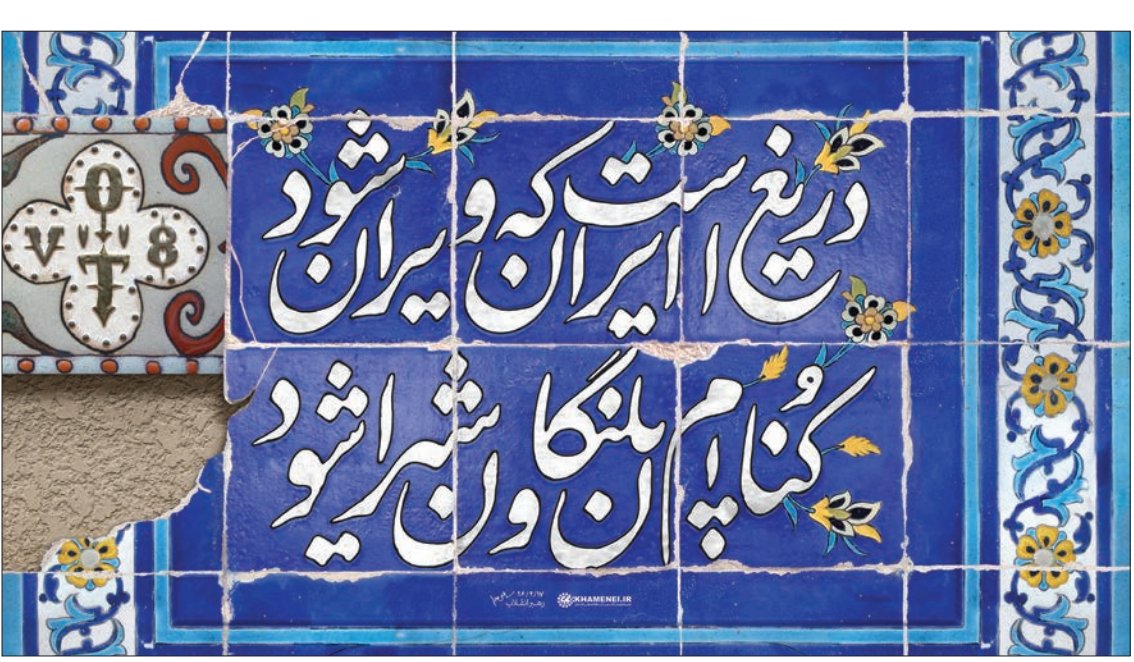 دریغ است ایران که ویران شود
کُنام پلنگان و شیران شود
O
V 8
T
رهبر انقلاب
KHAMENEI.IR